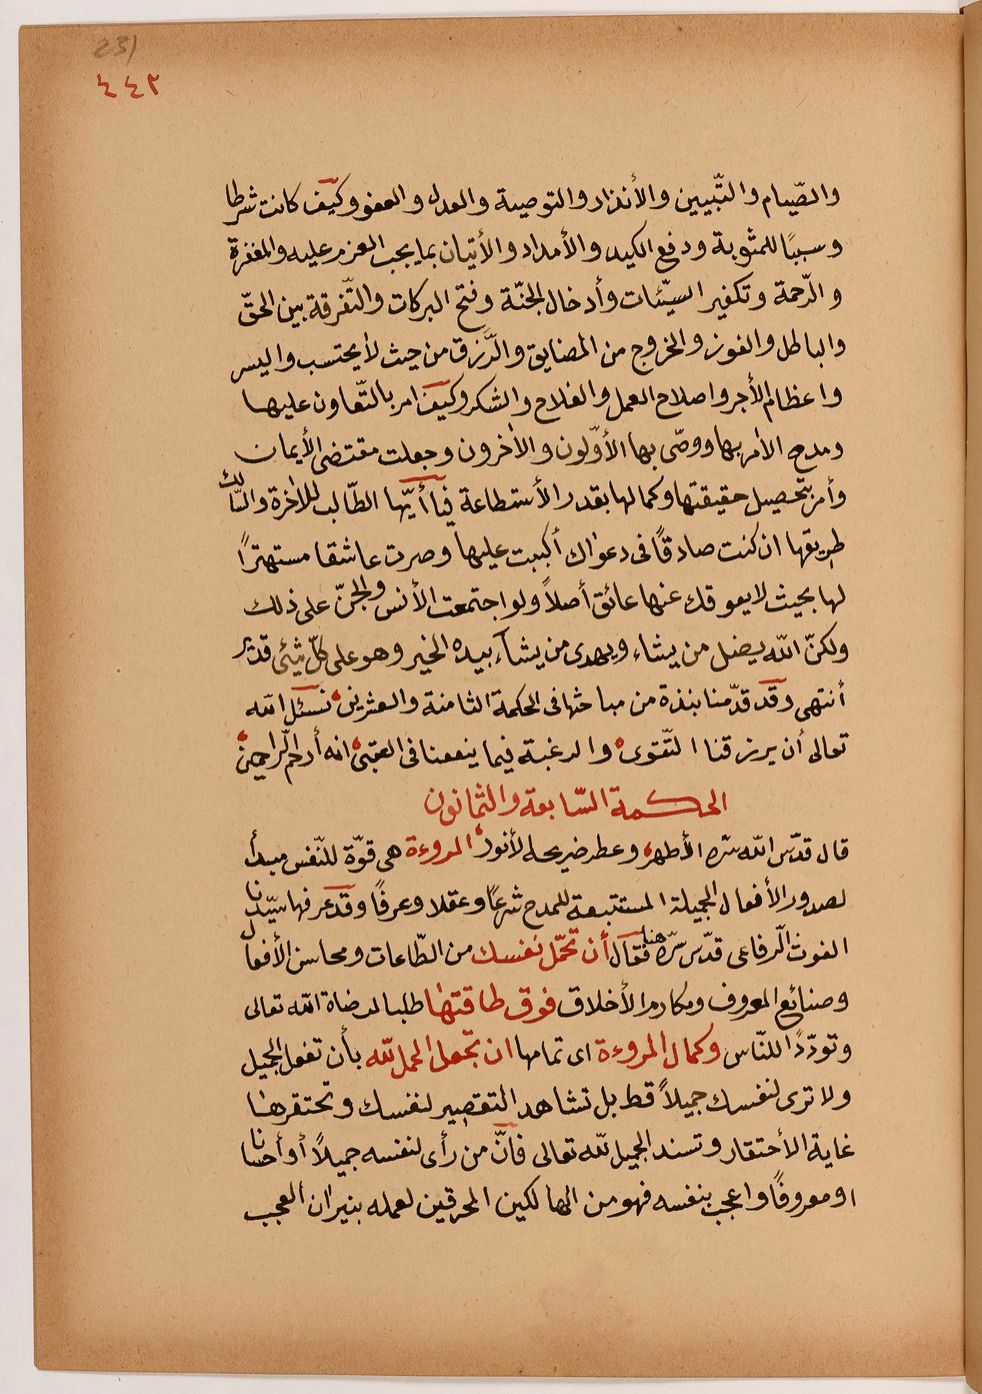 231
٤٤٢
والصّيام والتّبيين والأنذار والتوصية والعدل والعفو وكيف كانت شرطا
وسببًا للمثوبة ودفع الكيد والأمداد والأتيان بما يجب العزم عليه والمغفرة
والرّحمة وتكفير السيّئات وأدخال الجنّة وفتح البركات والتّفرقة بين الحقّ
والباطل والفوز والخروج من المضايق والرّزق من حيث لا يحتسب واليسر
واعظام الأجر واصلاح العمل والفلاح والشكر وكيف امر بالتّعاون عليها
ومدح الاٰمر بها ووصّى بها الأوّلون والاٰخرون وجعلت مقتضى الأيمان
وأمر بتحصيل حقيقتها وكمالها بقدر الأستطاعة فيا أيّها الطّالب للاٰخرة والسّالك
طريقها ان كنت صادقًا فى دعواك أكببت عليها وصرت عاشقا مستهترًا
لها بحيث لا يعوقك عنها عائق أصلاً ولو اجتمعت الأنس والجنّ على ذلك
ولكنّ اللّه يضل من يشاء ويهدى من يشآء بيده الخير وهو على كلّ شئ قدير
أنتهى وقد قدّمنا بنذة من مباحثها فى الحكمة الثامنة والعشرين نسئل اللّه
تعالى أن يرزقنا التّقوى والرغبة فيما ينفعنا فى العقبى انه أرحم الرّاحمين
الحكمة السّابعة والثمانون
قال قدّس اللّه سرّه الأطهر وعطر ضريحه الأنور المروءة هى قوّة للنّفس مبدأ
لصدور الأفعال الجميلة المستتبعة للمدح شرعًا وعقلا وعرفًا وقد عرفها سيّدنا
الغوث الرّفاعى قدّس سرّه هنا فقال أن تحمّل نفسك من الطّاعات ومحاسن الأفعال
وصنائع المعروف ومكارم الأخلاق فوق طاقتها طلبا لمرضاة اللّه تعالى
وتودّدًا للنّاس وكمال المروءة اى تمامها ان تجعل الحمل للّه بأن تفعل الجميل
ولا ترى لنفسك جميلاً قط بل تشاهد التقصير لنفسك وتحتقرها
غاية الأحتقار وتسند الجميل للّه تعالى فانّ من رأى لنفسه جميلاً أو أحسانا
او معروفًا واعجب بنفسه فهو من الهالكين المحرقين لعمله بنيران العجب